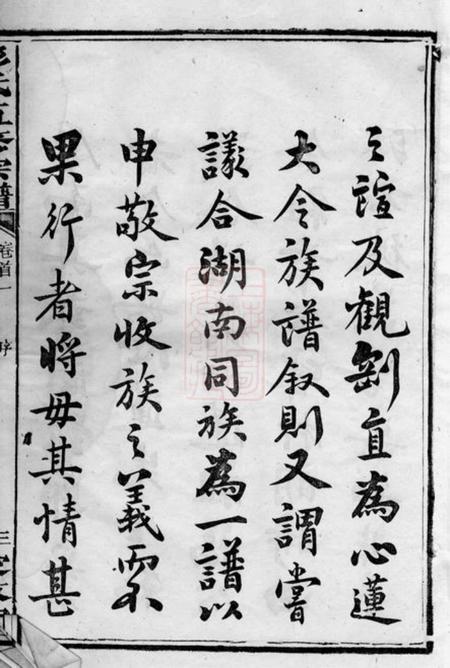 之誼及觀劍直為心蓮
大令族譜敘則又謂嘗
議合湖南同族為一譜以
申敬宗收族之義而不
果行者將毋其情甚
氏五修宗譜
卷首一
序
三